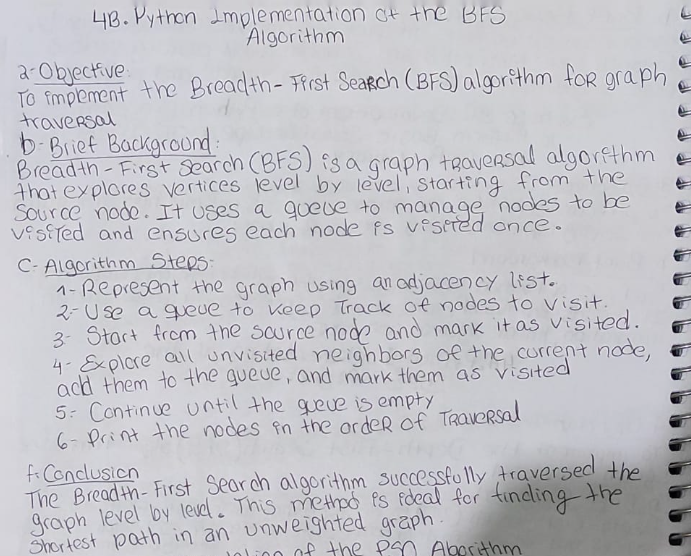 4B. Python Implementation of the BFS
Algorithm
a- Objective:
To implement the Breadth-First Search (BFS) algorithm for graph
traversal
b- Brief Background:
Breadth-First Search (BFS) is a graph traversal algorithm
that explores vertices level by level, starting from the
Source node. It uses a queue to manage nodes to be
visited and ensures each node is visited once.
C- Algorithm Steps:
1- Represent the graph using an adjacency list.
2- Use a queue to keep Track of nodes to visit.
3- Start from the source node and mark it as visited.
4- Explore all unvisited neighbors of the current node,
add them to the queue, and mark them as visited
5- Continue until the queue is empty
6- Print the nodes in the order of Traversal
f. Conclusion
The Breadth-First Search algorithm successfully traversed the
graph level by level. This method is ideal for finding the
shortest path in an unweighted graph.
of the PSO Algorithm